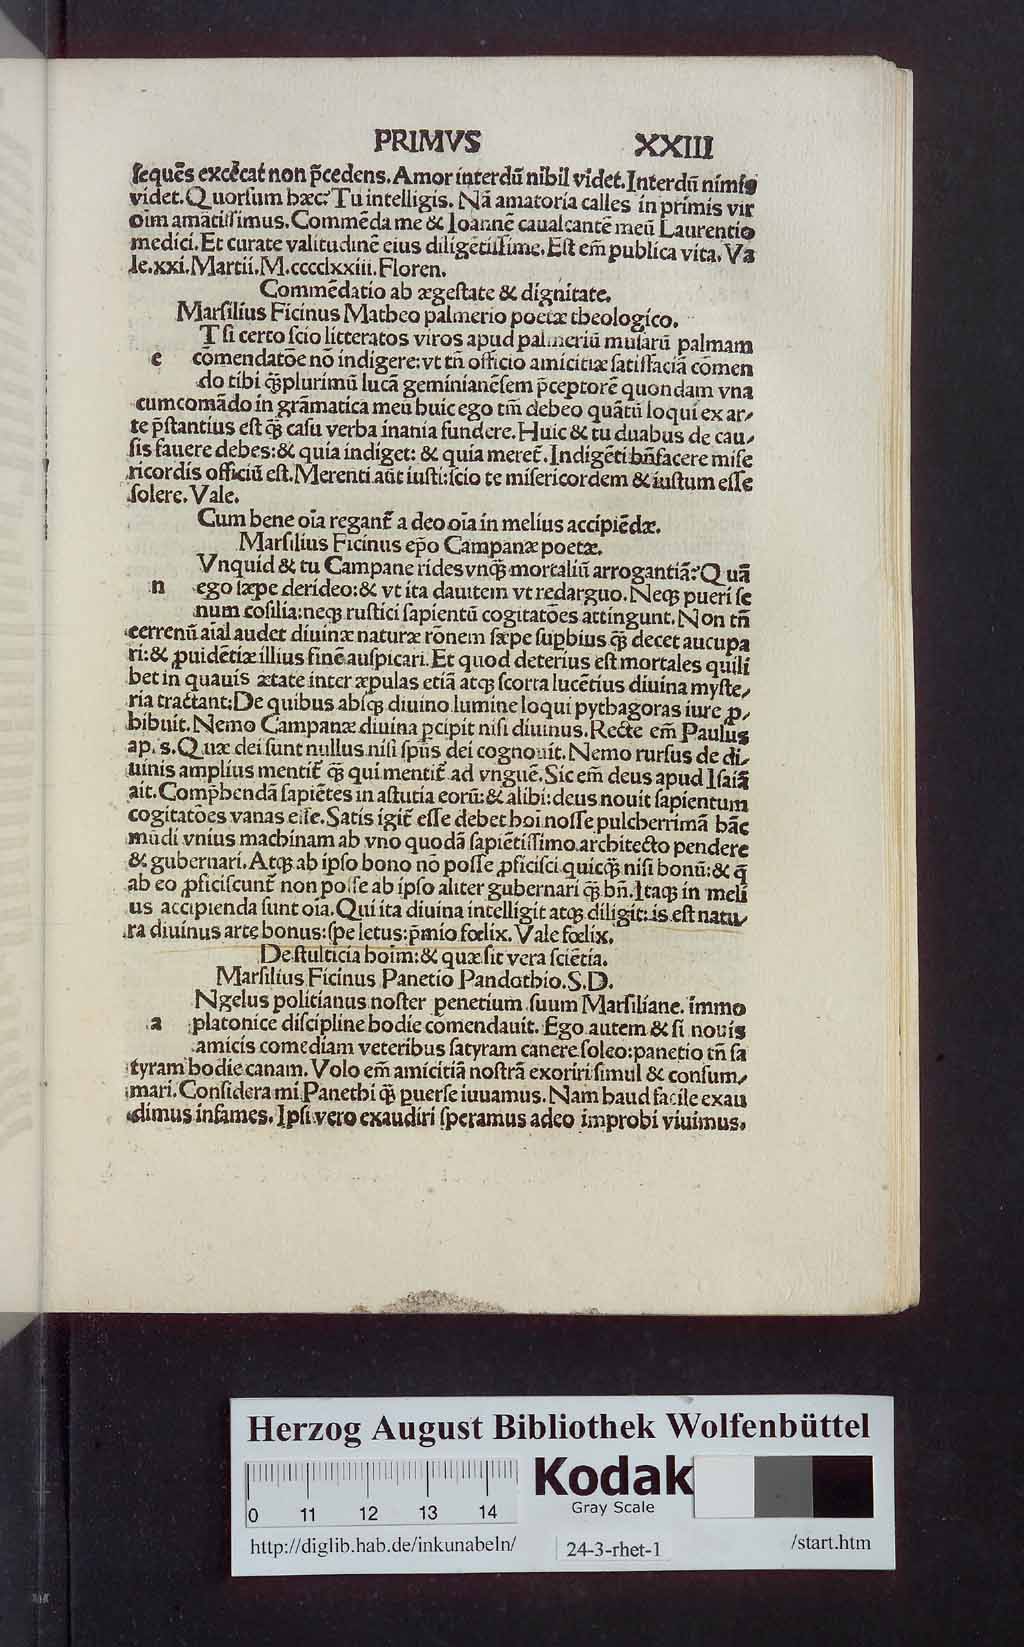 PRIMVS XXIII
ſequẽs excęcat non p̃cedens. Amor interdũ nihil videt. Interdũ nimis
videt. Quorſum hæc? Tu intelligis. Nã amatoria calles in primis vir
oĩm amãtiſſimus. Commẽda me & Ioannẽ caualcantẽ meũ Laurentio
medici. Et curate valitudinẽ eius diligẽtiſſime. Eſt em̃ publica vita. Va
le. xxi. Martii. M. cccclxxiii. Floren.
Commẽdatio ab ægeſtate & dignitate.
Marſilius Ficinus Matheo palmerio poetæ theologico.
T ſi certo ſcio litteratos viros apud palmeriũ muſarũ palmam
e cõmendatõe nõ indigere: vt tñ officio amicitiæ ſatiſfaciã cõmen
do tibi q̃plurimũ lucã geminianẽſem p̃ceptorẽ quondam vna
cum comãdo in grãmatica meũ huic ego tm̃ debeo quãtũ loqui ex ar⸗
te p̃ſtantius eſt q̃ caſu verba inania fundere. Huic & tu duabus de cau⸗
ſis fauere debes: & quia indiget: & quia meret̃. Indigẽti bñfacere miſe
ricordis officiũ eſt. Merenti aũt iuſti: ſcio te miſericordem & iuſtum eſſe
ſolere. Vale.
Cum bene oĩa regant̃ a deo oĩa in melius accipiẽdæ.
Marſilius Ficinus ep̃o Campanæ poetæ.
Vnquid & tu Campane rides vnq̃ mortaliũ arrogantiã? Quã
n ego ſæpe derideo: & vt ita dauitem vt redarguo. Neqꝫ pueri ſe
num cõſilia: neqꝫ ruſtici ſapientũ cogitatões attingunt. Non tñ
terrenũ aĩal audet diuinæ naturæ rõnem ſæpe ſupbius q̃ decet aucupa
ri: & ꝓuidẽtiæ illius finẽ auſpicari. Et quod deterius eſt mortales quili
bet in quauis ætate inter æpulas etiã atqꝫ ſcorta lucẽtius diuina myſte⸗
ria tractant: De quibus abſqꝫ diuino lumine loqui pythagoras iure ꝓ⸗
hibuit. Nemo Campanæ diuina ꝑcipit niſi diuinus. Recte em̃ Paulus
ap. s. Quæ dei ſunt nullus niſi ſpũs dei cognouit. Nemo rurſus de di⸗
uinis amplius mentit̃ q̃ qui mentit̃ ad vnguẽ. Sic em̃ deus apud Iſaiã
ait. Comp̃hendã ſapiẽtes in aſtutia eorũ: & alibi: deus nouit ſapientum
cogitatões vanas eſſe. Satis igit̃ eſſe debet hoĩ noſſe pulcherrimã hãc
mũdi vnius machinam ab vno quodã ſapiẽtiſſimo architecto pendere
& gubernari. Atqꝫ ab ipſo bono nõ poſſe ꝓficiſci quicq̃ niſi bonũ: & q̃
ab eo ꝓficiſcunt̃ non poſſe ab ipſo aliter gubernari q̃ bñ. Itaqꝫ in meli
us accipienda ſunt oĩa. Qui ita diuina intelligit atqꝫ diligit: is eſt natu⸗
ra diuinus arte bonus: ſpe letus: p̃mio fœlix. Vale fœlix.
De ſtulticia hoĩm: & quæ ſit vera ſciẽtia.
Marſilius Ficinus Panetio Pandothio. S. D.
Ngelus politianus noſter penetium ſuum Marſiliane. immo
a platonice diſcipline hodie comendauit. Ego autem & ſi nouis
amicis comediam veteribus ſatyram canere ſoleo: panetio tñ ſa
tyram hodie canam. Volo em̃ amicitiã noſtrã exoriri ſimul & conſum⸗
mari. Conſidera mi Panethi q̃ puerſe iuuamus. Nam haud facile exau
dimus infames. Ipſi vero exaudiri ſperamus adeo improbi viuimus.
Herzog August Bibliothek Wolfenbüttel
Kodak
Gray Scale
0 11 12 13 14
http://diglib.hab.de/inkunabeln/ 24-3-rhet-1 /start.htm